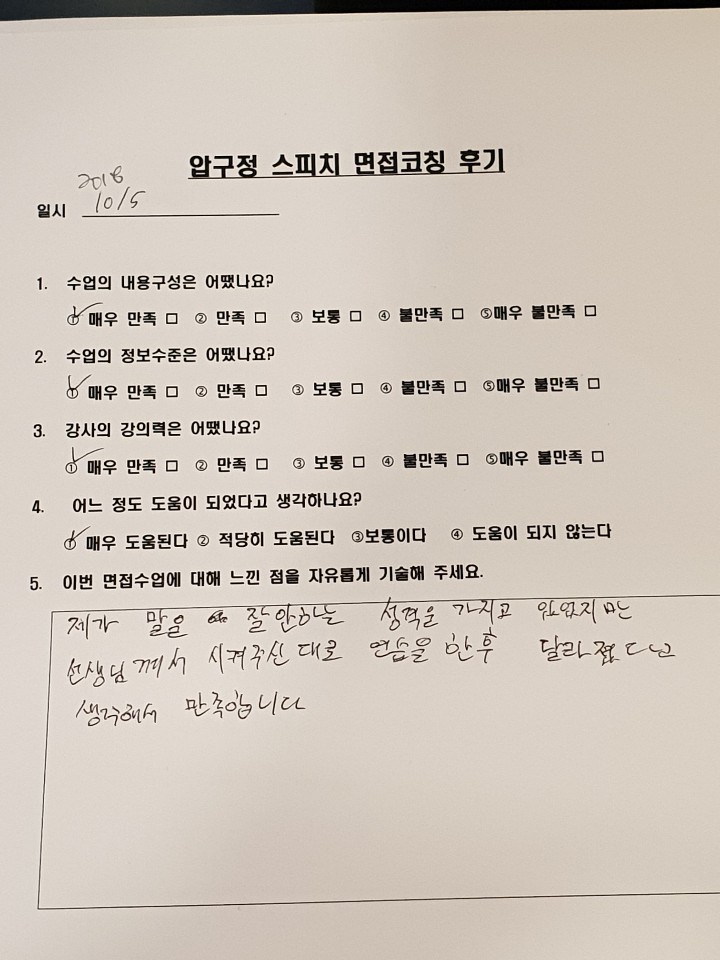 압구정 스피치 면접코칭 후기
2018
일시 10/5
1. 수업의 내용구성은 어땠나요?
① 매우 만족 □ ② 만족 □ ③ 보통 □ ④ 불만족 □ ⑤매우 불만족 □
2. 수업의 정보수준은 어땠나요?
① 매우 만족 □ ② 만족 □ ③ 보통 □ ④ 불만족 □ ⑤매우 불만족 □
3. 강사의 강의력은 어땠나요?
① 매우 만족 □ ② 만족 □ ③ 보통 □ ④ 불만족 □ ⑤매우 불만족 □
4. 어느 정도 도움이 되었다고 생각하나요?
① 매우 도움된다 ② 적당히 도움된다 ③보통이다 ④ 도움이 되지 않는다
5. 이번 면접수업에 대해 느낀 점을 자유롭게 기술해 주세요.
제가 말을 잘 안하는 성격을 가지고 있었지만
선생님께서 시켜주신 대로 연습을 한후 달라졌다고
생각해서 만족합니다